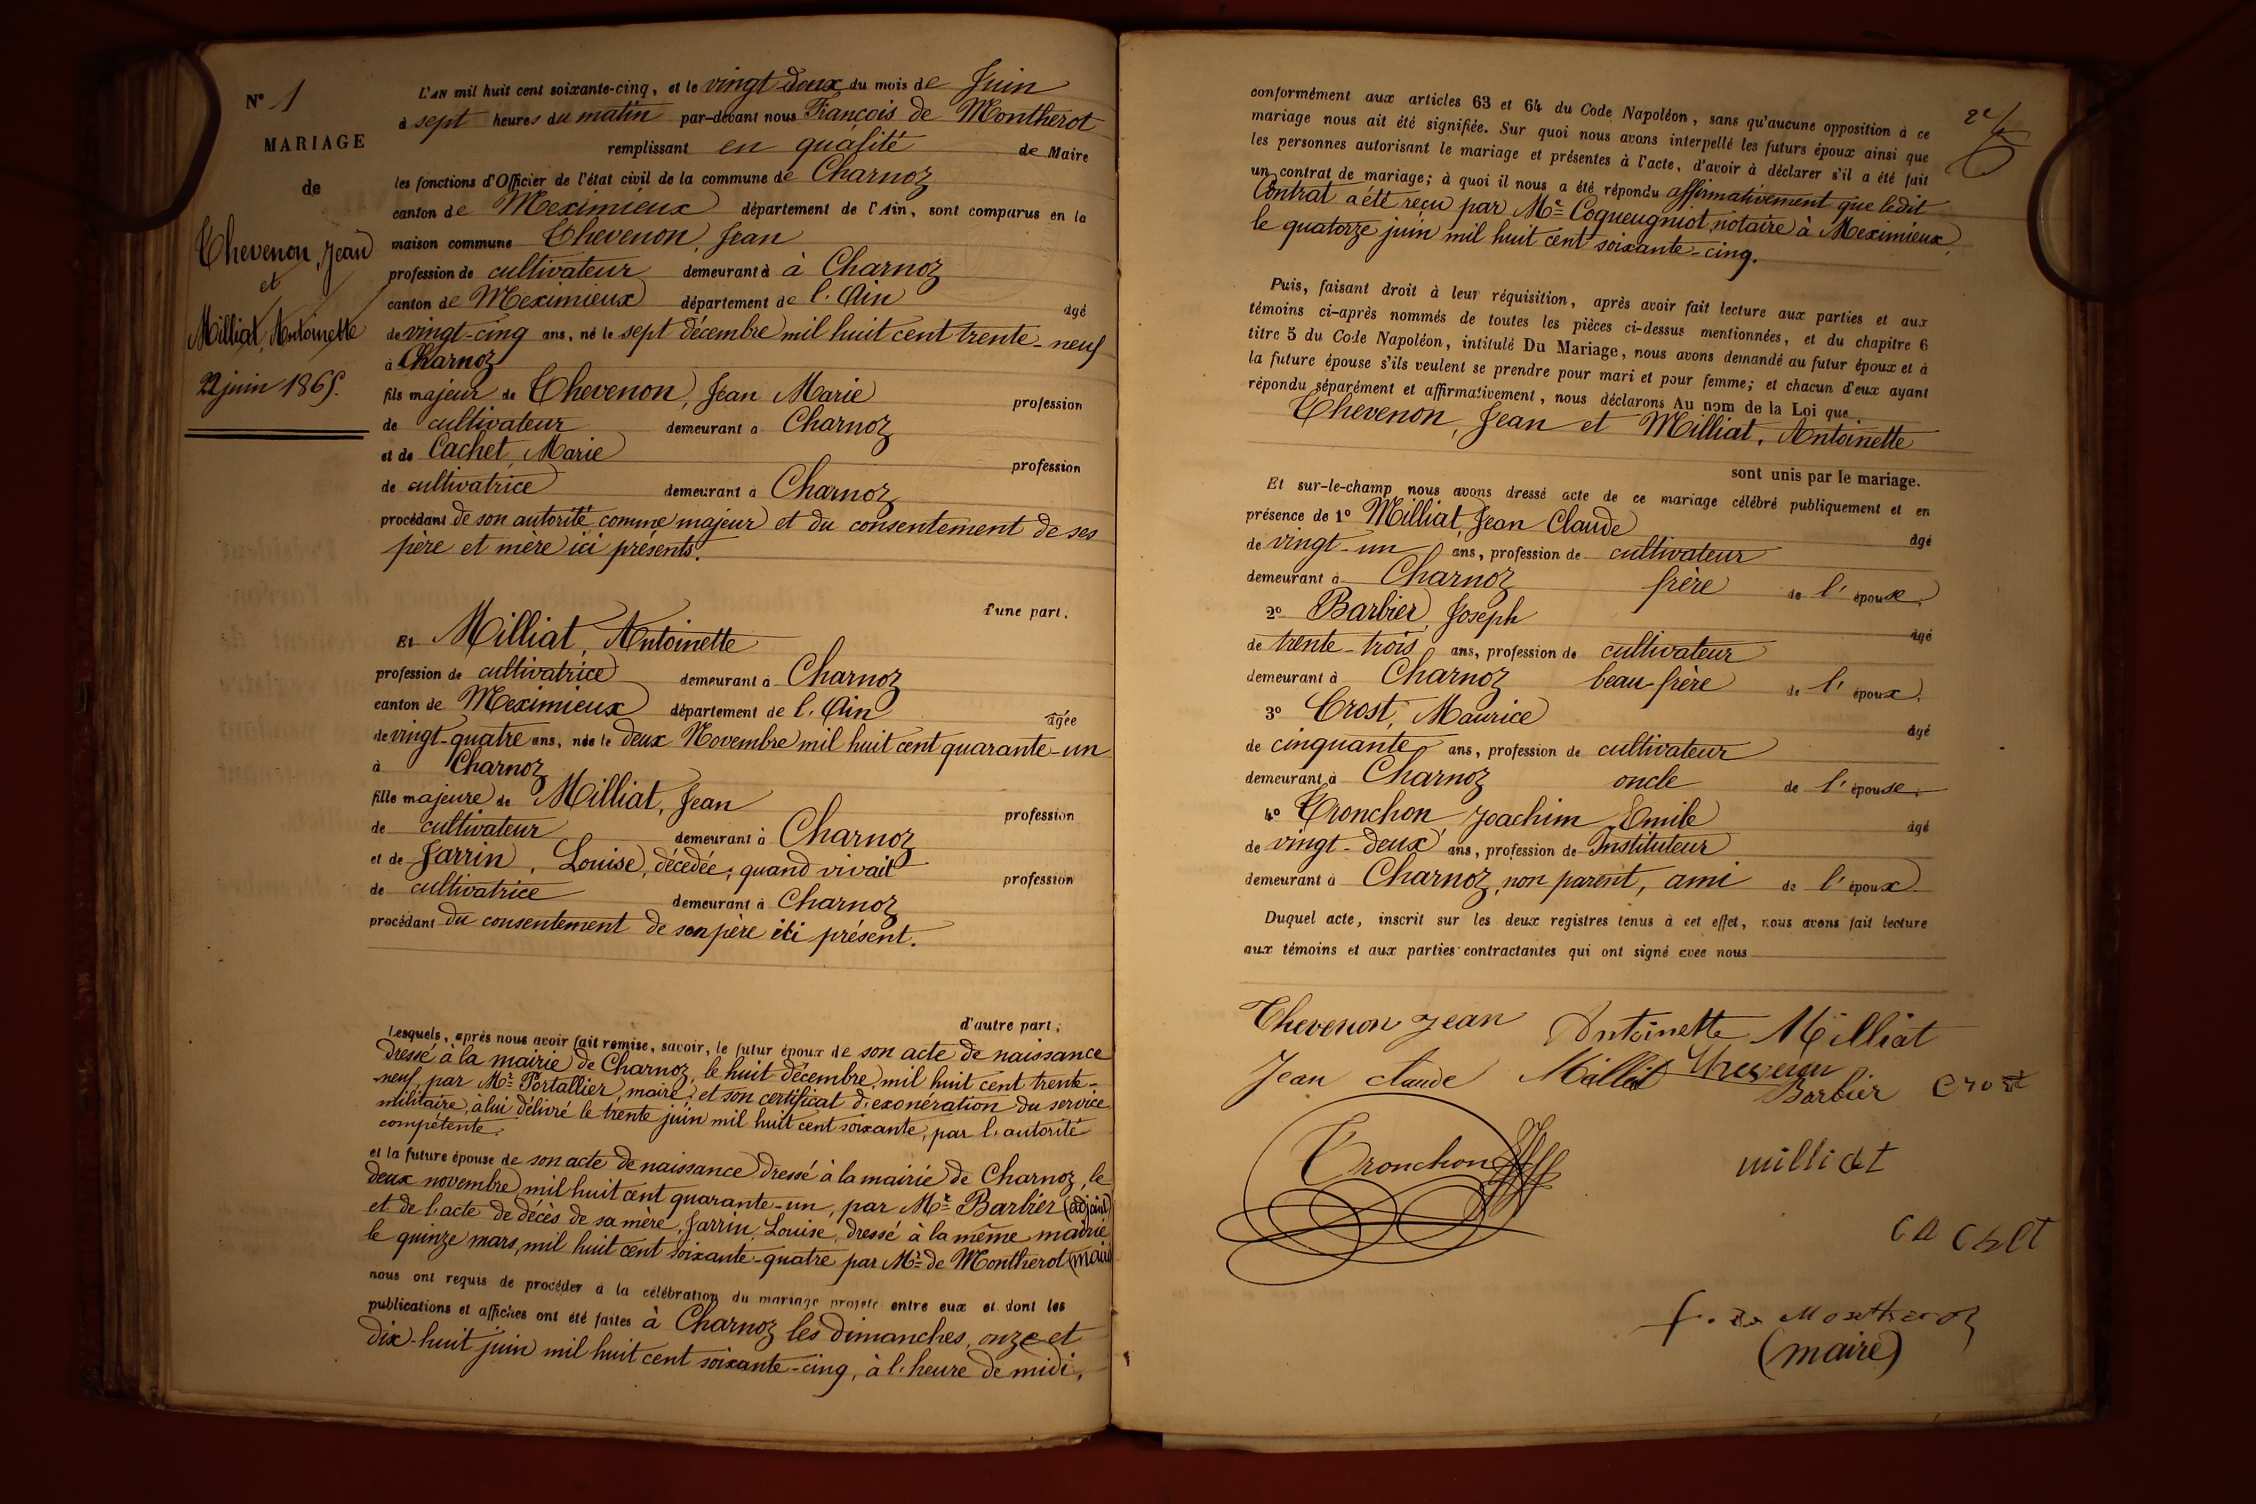 N° 1
MARIAGE
de
Chevenon, Jean
et
Milliat, Antoinette
22 juin 1865.
L'AN mil huit cent soixante-cinq, et le vingt deux du mois de Juin
à sept heures du matin par-devant nous François de Montherot
remplissant en qualité de Maire
les fonctions d'Officier de l'état civil de la commune de Charnoz
canton de Meximieux département de l'Ain, sont comparus en la
maison commune Chevenon, Jean
profession de cultivateur demeurant à à Charnoz
canton de Meximieux département de l'Ain âgé
de vingt-cinq ans, né le sept décembre mil huit cent trente-neuf
à Charnoz
fils majeur de Chevenon, Jean Marie profession
de cultivateur demeurant à Charnoz
et de Cachet, Marie profession
de cultivatrice demeurant à Charnoz
procédant de son autorité comme majeur et du consentement de ses
père et mère ici présents.
d'une part.
Et Milliat, Antoinette
profession de cultivatrice demeurant à Charnoz
canton de Meximieux département de l'Ain âgée
de vingt-quatre ans, née le deux Novembre mil huit cent quarante-un
à Charnoz
fille majeure de Milliat, Jean profession
de cultivateur demeurant à Charnoz
et de Jarrin, Louise, décédée, quand vivait profession
de cultivatrice demeurant à Charnoz
procédant du consentement de son père ici présent.
d'autre part;
Lesquels, après nous avoir fait remise, savoir, le futur époux de son acte de naissance
dressé à la mairie de Charnoz, le huit décembre mil huit cent trente-
neuf, par Mr Portallier, maire, et son certificat d'exonération du service
militaire, à lui délivré le trente juin mil huit cent soixante, par l'autorité
compétente.
et la future épouse de son acte de naissance dressé à la mairie de Charnoz, le
deux novembre mil huit cent quarante-un, par Mr Barbier (adjoint)
et de l'acte de décès de sa mère, Jarrin, Louise, dressé à la même mairie
le quinze mars, mil huit cent soixante-quatre par Mr de Montherot (maire)
nous ont requis de procéder à la célébration du mariage projeté entre eux et dont les
publications et affiches ont été faites à Charnoz les dimanches, onze et
dix-huit juin mil huit cent soixante-cinq, à l'heure de midi,
conformément aux articles 63 et 64 du Code Napoléon, sans qu'aucune opposition à ce
mariage nous ait été signifiée. Sur quoi nous avons interpellé les futurs époux ainsi que
les personnes autorisant le mariage et présentes à l'acte, d'avoir à déclarer s'il a été fait
un contrat de mariage; à quoi il nous a été répondu affirmativement que ledit
Contrat a été reçu par Me Coqueugniot, notaire à Meximieux,
le quatorze juin mil huit cent soixante-cinq.
Puis, faisant droit à leur réquisition, après avoir fait lecture aux parties et aux
témoins ci-après nommés de toutes les pièces ci-dessus mentionnées, et du chapitre 6
titre 5 du Code Napoléon, intitulé Du Mariage, nous avons demandé au futur époux et à
la future épouse s'ils veulent se prendre pour mari et pour femme; et chacun d'eux ayant
répondu séparément et affirmativement, nous déclarons Au nom de la Loi que
Chevenon, Jean et Milliat, Antoinette
sont unis par le mariage.
Et sur-le-champ nous avons dressé acte de ce mariage célébré publiquement et en
présence de 1° Milliat, Jean Claude âgé
de vingt-un ans, profession de cultivateur
demeurant à Charnoz frère de l'épouse.
2° Barbier, Joseph âgé
de trente-trois ans, profession de cultivateur
demeurant à Charnoz beau-frère de l'époux.
3° Crost, Maurice âgé
de cinquante ans, profession de cultivateur
demeurant à Charnoz oncle de l'épouse.
4° Tronchon, Joachim Emile âgé
de vingt-deux ans, profession de Instituteur
demeurant à Charnoz, non parent, ami de l'époux
Duquel acte, inscrit sur les deux registres tenus à cet effet, nous avons fait lecture
aux témoins et aux parties contractantes qui ont signé avec nous
Chevenon Jean Antoinette Milliat
Jean claude Milliat Chevenon
Barbier Crost
Tronchon milliat
CACHET
f. de Montherot
(maire)